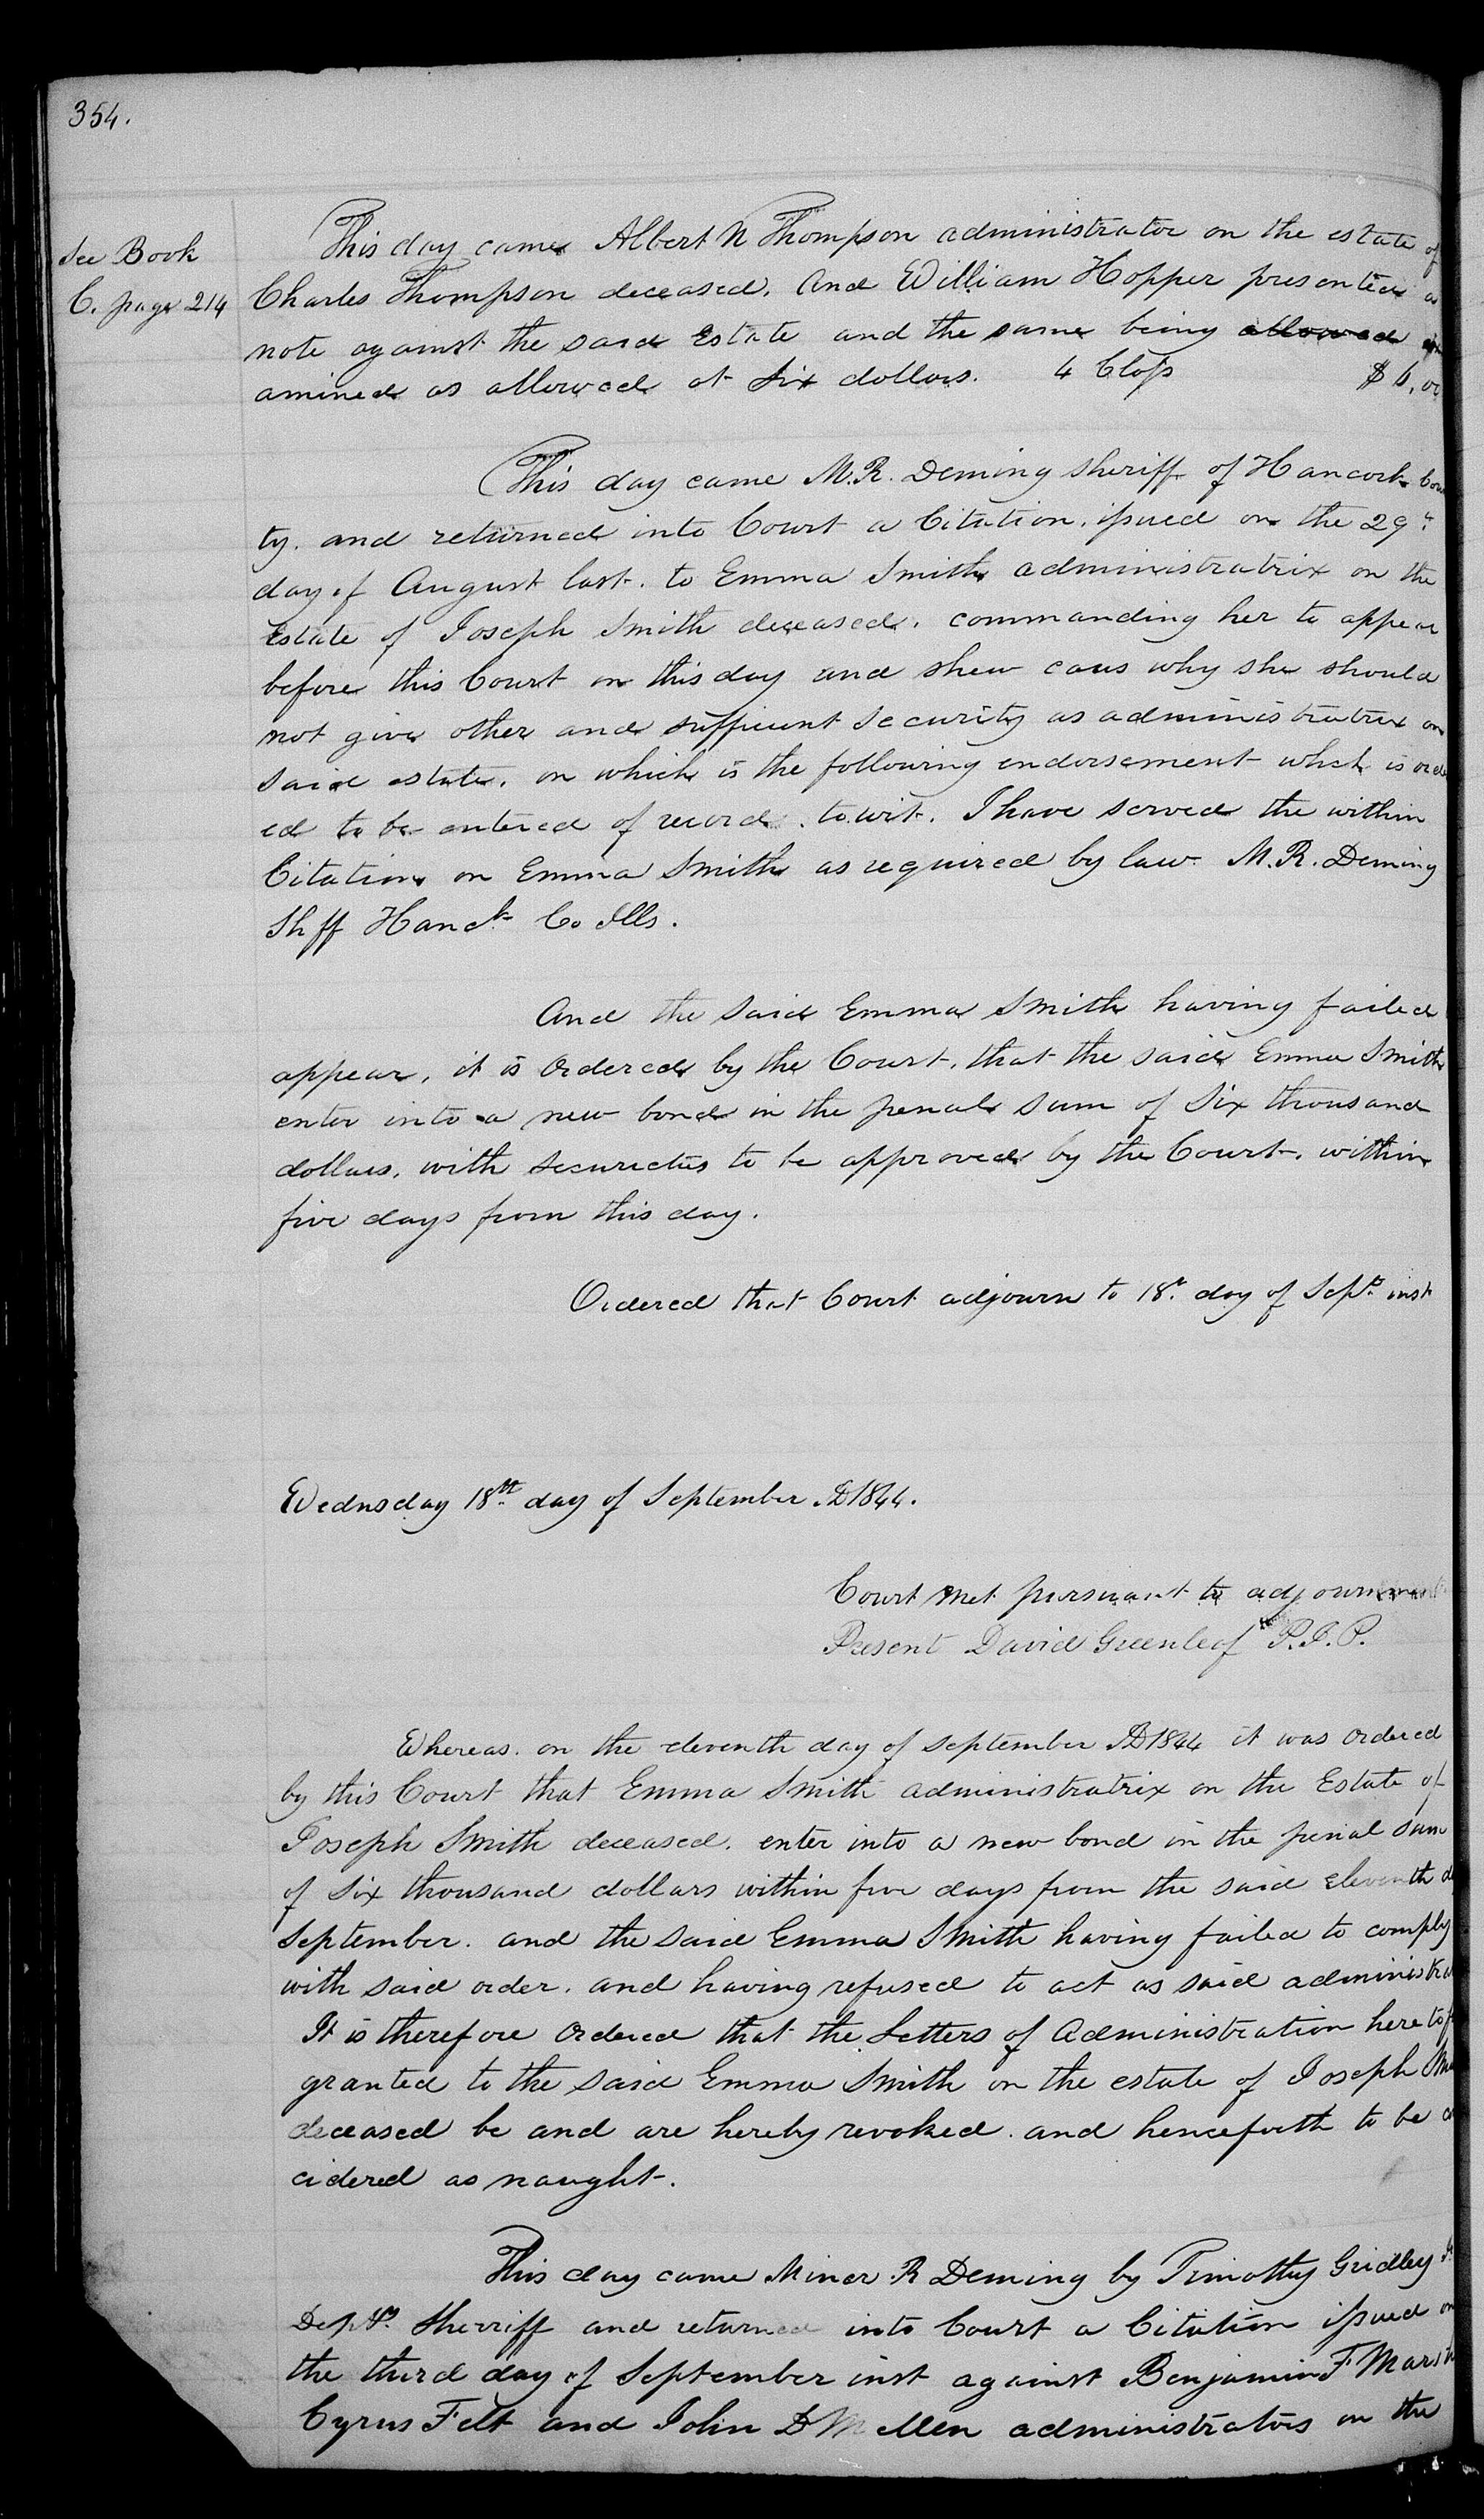 354.
See Book
C. page 214
This day came Albert N Thompson administrator on the estate of
Charles Thompson deceased. And William Hopper presented a
note against the said Estate and the same being allowed
amined as allowed at six dollars. 4 Class $6,00
This day came M.R. Deming sheriff of Hancock Coun
ty. and returned into Court a Citation, issued on the 29th
day of August last. to Emma Smith administratrix on the
Estate of Joseph Smith deceased. commanding her to appear
before this Court on this day and shew caus why she should
not give other and sufficient security as administratrix on
said estate. on which is the following endorsement which is ord
ed to be entered of record. towit. I have served the within
Citation on Emma Smith as required by law. M.R. Deming
Shff Hanck Co Ills.
And the said Emma Smith having failed
appear, it is Ordered by the Court, that the said Emma Smith
enter into a new bond in the penal sum of Six thousand
dollars, with securieties to be approved by the Court, within
five days from this day.
Ordered that Court adjourn to 18th day of Sept. inst
Wednsday 18th day of September AD1844.
Court met pursuant to adjournment
Present David Greenleaf P.J.P.
Whereas. on the eleventh day of September AD1844 it was Ordered
by this Court that Emma Smith administratrix on the Estate of
Joseph Smith deceased. enter into a new bond in the penal sum
of six thousand dollars within five days from the said eleventh d
September. and the said Emma Smith having failed to comply
with said order. and having refused to act as said administra
It is therefore Ordered that the Letters of Administration heretof
granted to the said Emma Smith on the estate of Joseph Sm
deceased be and are hereby revoked. and henceforth to be co
cidered as naught.
This day came Miner R Deming by Timothy Gridley
Depty. Sherriff and returned into Court a Citation issued on
the third day of September inst against Benjamin F Marsh
Cyrus Felt and John D Mellen administrators on the